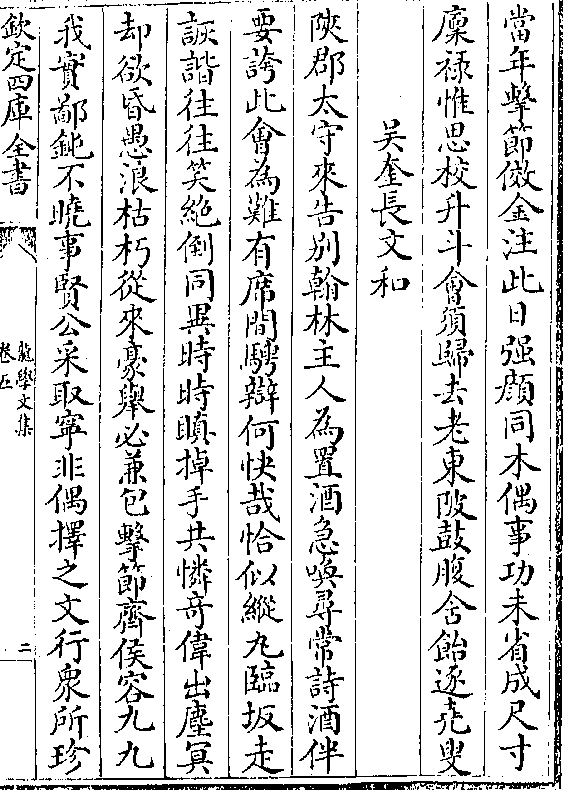 當年擊節傚金注此日强顔同木偶事功未省成尺寸
廩禄惟思校升斗會須歸去老東陂鼓腹含飴逐堯叟
吴奎長文和
陜郡太守來告别翰林主人為置酒急喚尋常詩酒伴
要誇此會為難有席間騁辯何快哉恰似縱丸臨坂走
詼諧往往笑絶倒同異時時瞋掉手共憐竒偉出塵冥
却欲昏愚浪枯朽從來豪舉必兼包擊節齊侯容九九
我實鄙鈍不曉事賢公采取寧非偶擇之文行衆所珍
欽定四庫全書
龍學文集
卷五
二